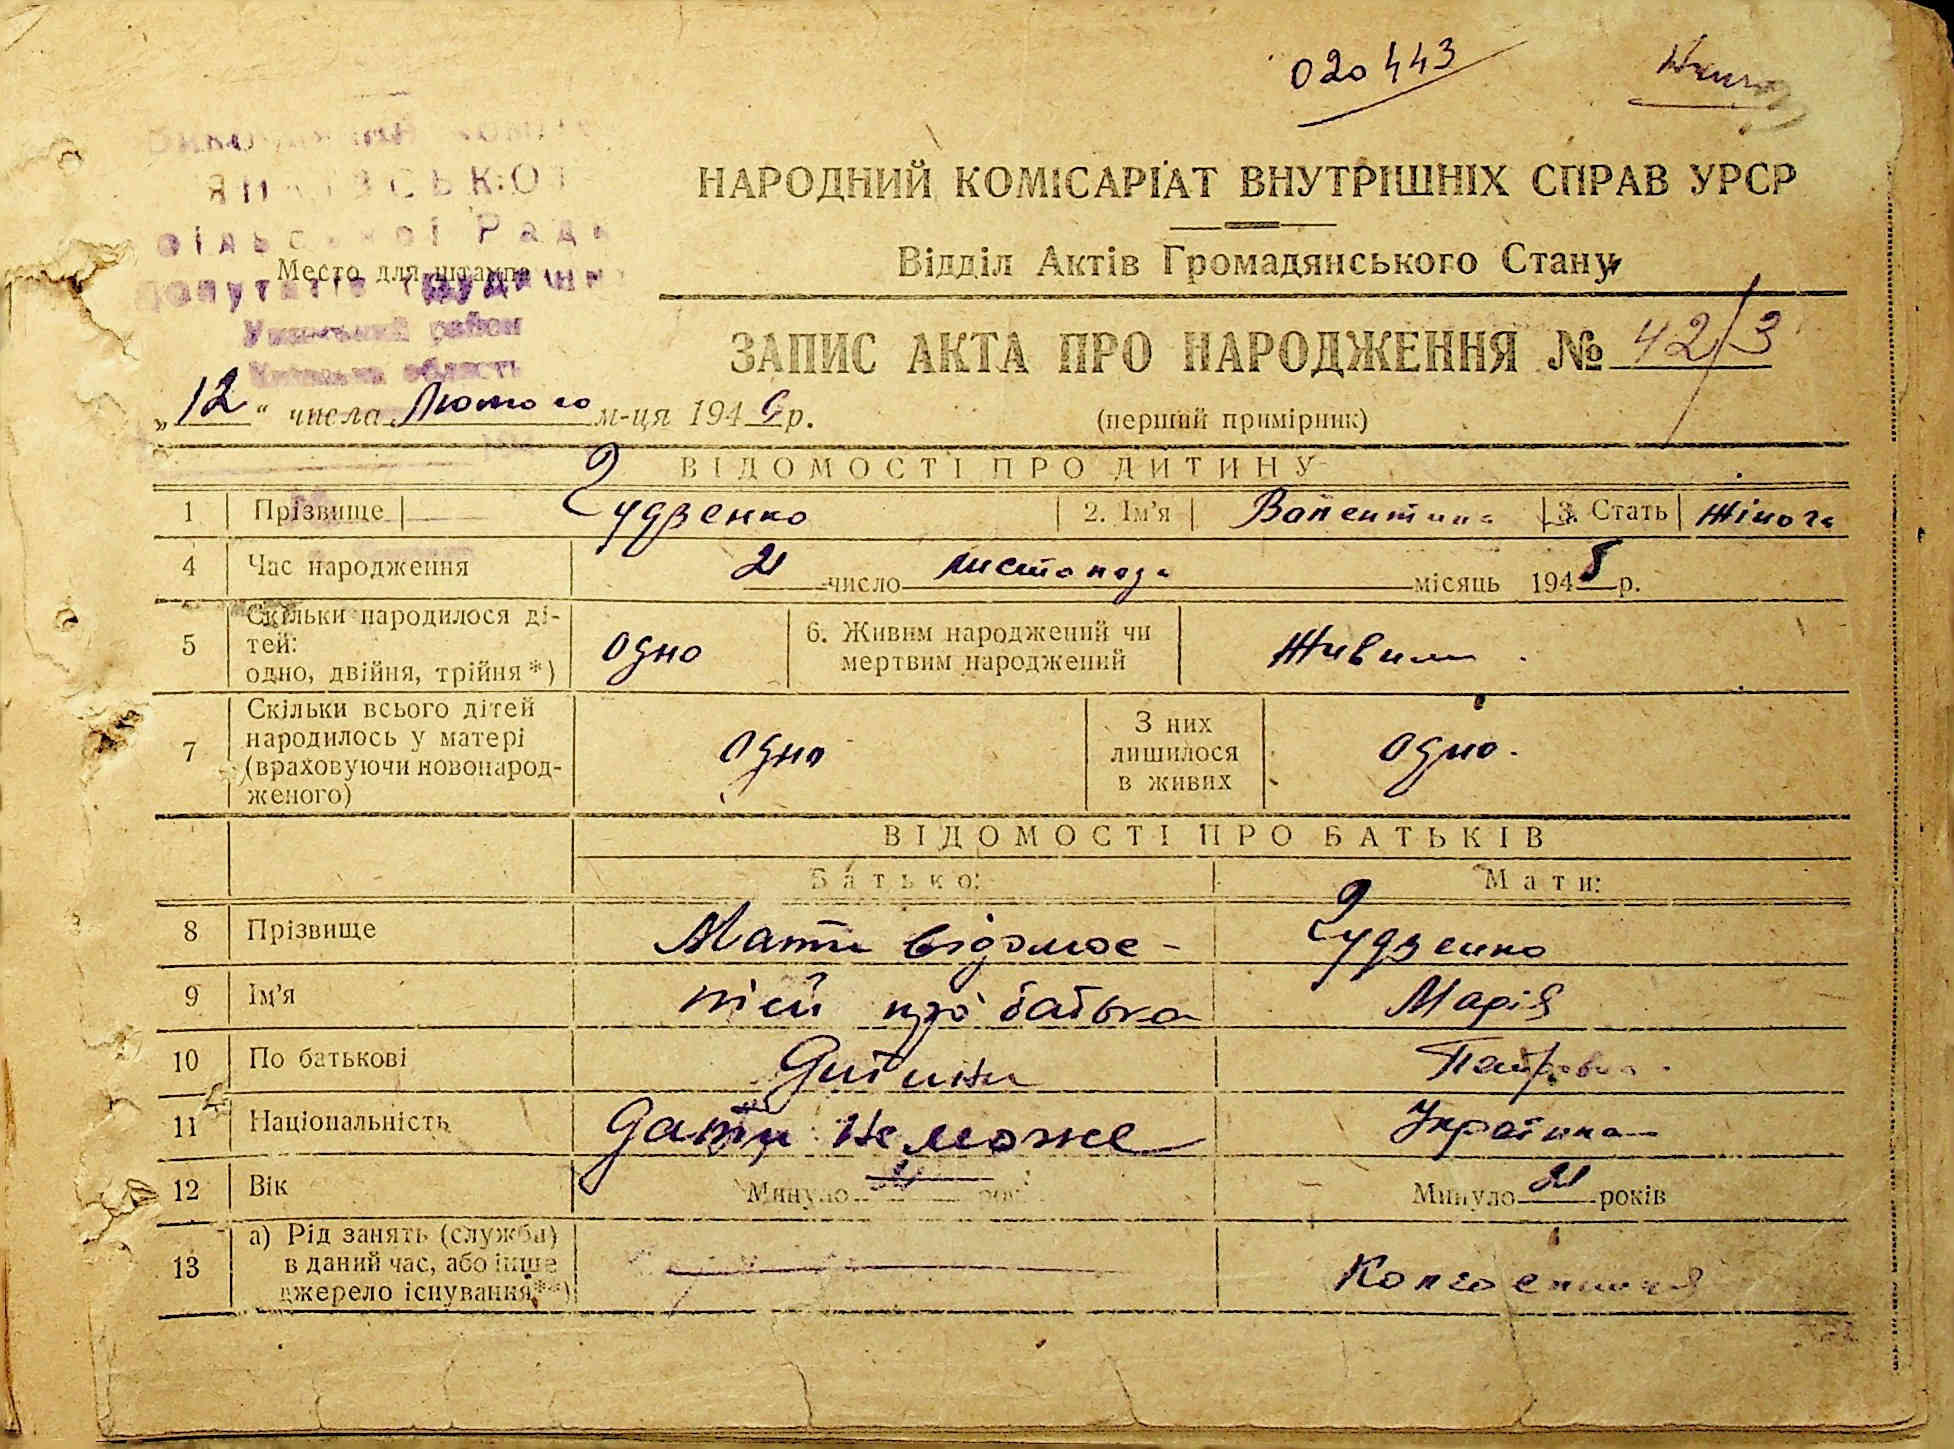 020443
НАРОДНИЙ КОМІСАРІАТ ВНУТРІШНІХ СПРАВ УРСР
Відділ Актів Громадянського Стану
сільської Ради
Место для штампа
район
область
ЗАПИС АКТА ПРО НАРОДЖЕННЯ № 42/3
„12“ числа Лютого м-ця 1946 р.
(перший примірник)
ВІДОМОСТІ ПРО ДИТИНУ
1 Прізвище Гудзенко 2. Ім'я Валентина 3. Стать Жіноча
4 Час народження 21 число листопада місяць 1945 р.
5 Скільки народилося ді-
тей:
одно, двійня, трійня*) одно 6. Живим народжений чи
мертвим народжений Живим
7 Скільки всього дітей
народилось у матері
(враховуючи новонарод-
женого) одно З них
лишилося
в живих одно.
ВІДОМОСТІ ПРО БАТЬКІВ
Батько: Мати:
8 Прізвище Мати відомос- Гудзенко
9 Ім'я тій про батька Марія
10 По батькові Дитини Петровна
11 Національність дати не може Українка
12 Вік Минуло — років Минуло 21 років
13 а) Рід занять (служба)
в даний час, або інше
джерело існування**) — Колгоспниця